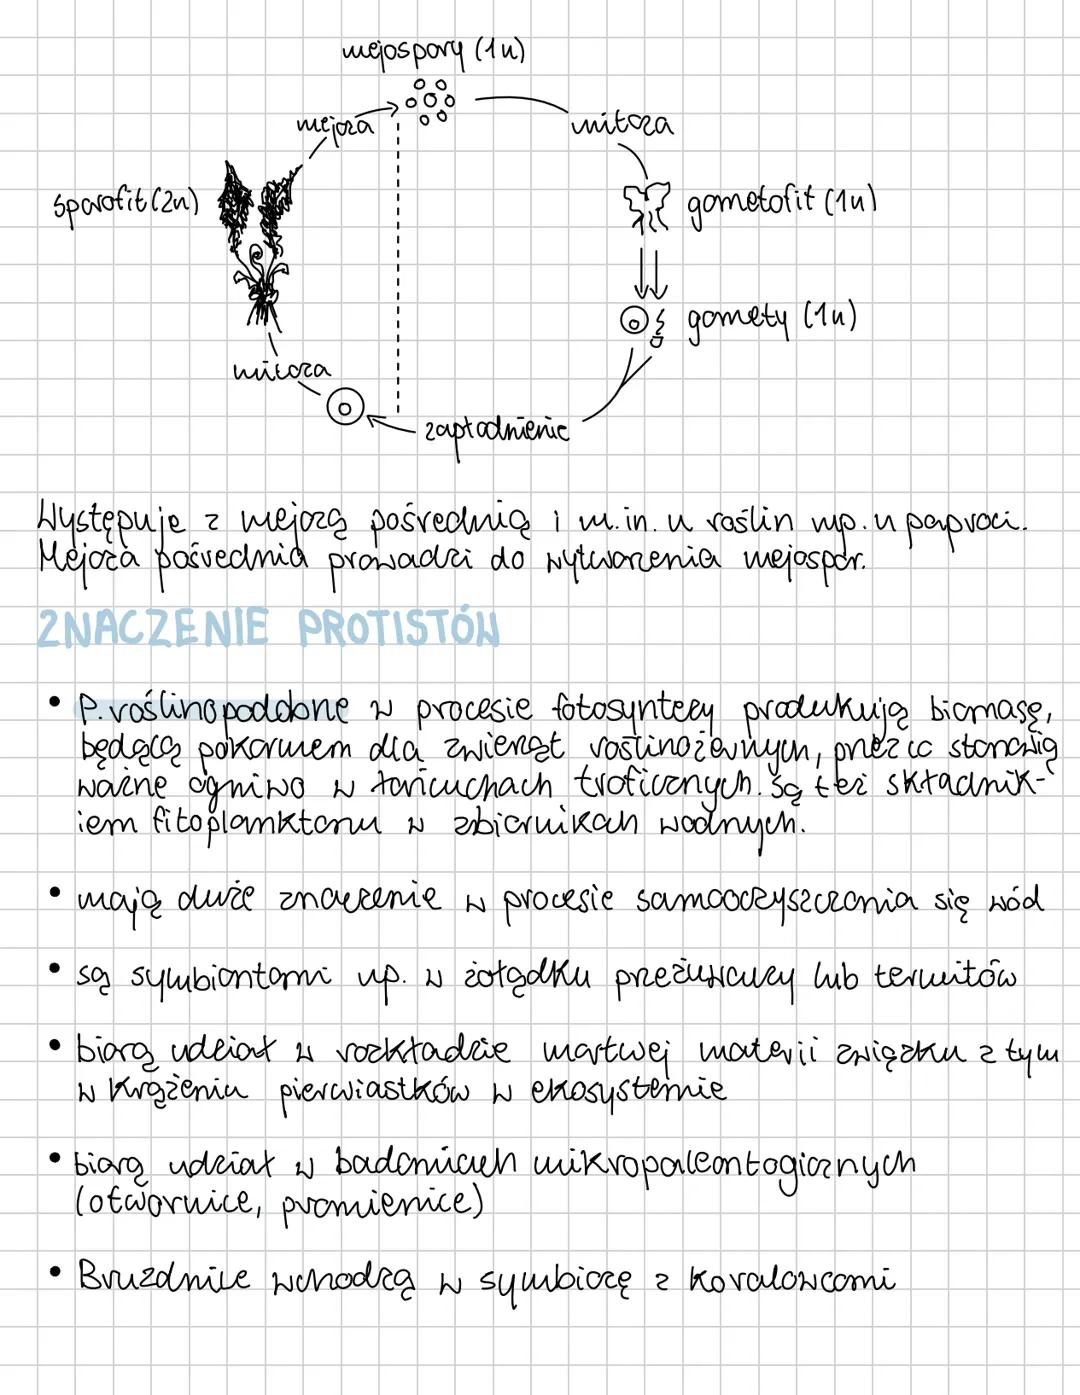 mejospory (1n)
mejoza
mitoza
sporofit (2n)
gametofit (1n)
gamety (1n)
mitoza
zapłodnienie
Występuje z mejozą pośrednią i m.in. u roślin np. u paproci.
Mejoza pośrednia prowadzi do wytworzenia mejospor.
ZNACZENIE PROTISTÓW
• P. roślinopodobne w procesie fotosyntezy produkują biomasę,
będącą pokarmem dla zwierząt roślinożernych, przez co stanowią
ważne ogniwo w łańcuchach troficznych. Są też składnik-
iem fitoplanktonu w zbiornikach wodnych.
• mają duże znaczenie w procesie samooczyszczania się wód
• są symbiontami np. w żołądku przeżuwaczy lub termitów
• biorą udział w rozkładzie martwej materii związku z tym
w krążeniu pierwiastków w ekosystemie
• biorą udział w badaniach mikropaleontologicznych
(otwornice, promienice)
• Bruzdnice wchodzą w symbiozę z koralowcami